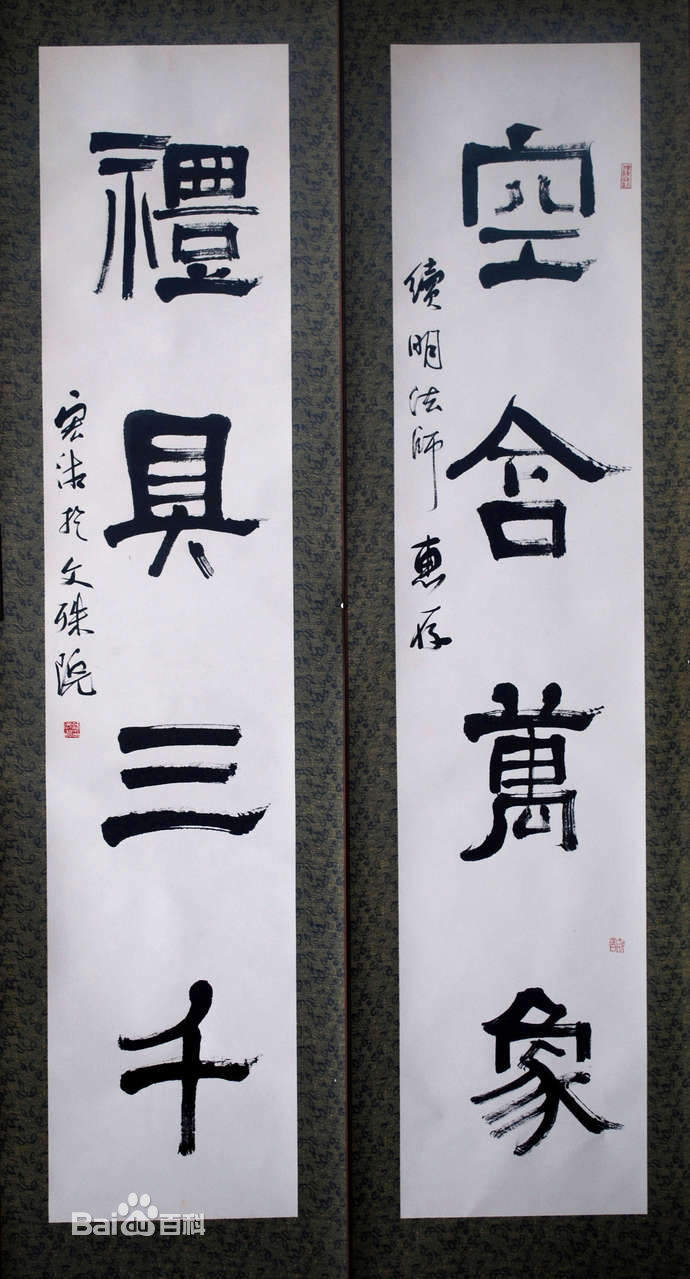 空含萬象
續明法師 惠存
禮具三千
於文殊院
Bai du 百科